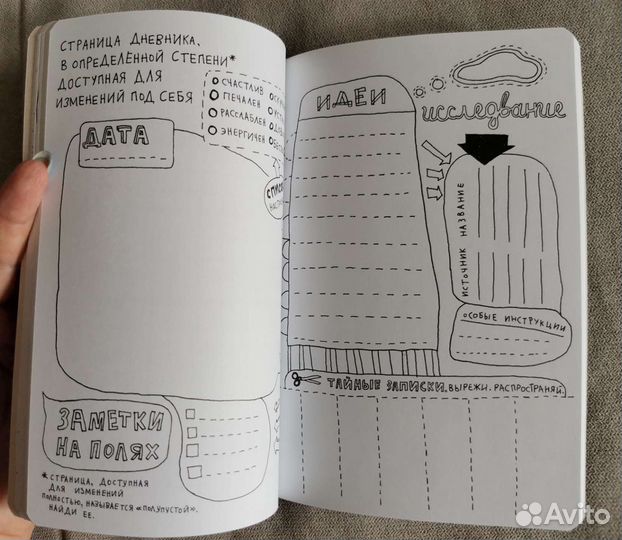 СТРАНИЦА ДНЕВНИКА,
В ОПРЕДЕЛЁННОЙ СТЕПЕНИ*
ДОСТУПНАЯ ДЛЯ
ИЗМЕНЕНИЙ ПОД СЕБЯ
СЧАСТЛИВ
ПЕЧАЛЕН
РАССЛАБЛЕН
ЭНЕРГИЧЕН
ДАТА
ЗАМЕТКИ
НА ПОЛЯХ
* СТРАНИЦА, ДОСТУПНАЯ
ДЛЯ ИЗМЕНЕНИЙ
ПОЛНОСТЬЮ, НАЗЫВАЕТСЯ «ПОЛУПУСТОЙ».
НАЙДИ ЕЕ.
ИДЕИ
исследвание
ИСТОЧНИК НАЗВАНИЕ
ОСОБЫЕ ИНСТРУКЦИИ
ТАЙНЫЕ ЗАПИСКИ. ВЫРЕЖИ. РАСПРОСТРАНЯЙ.
Avito